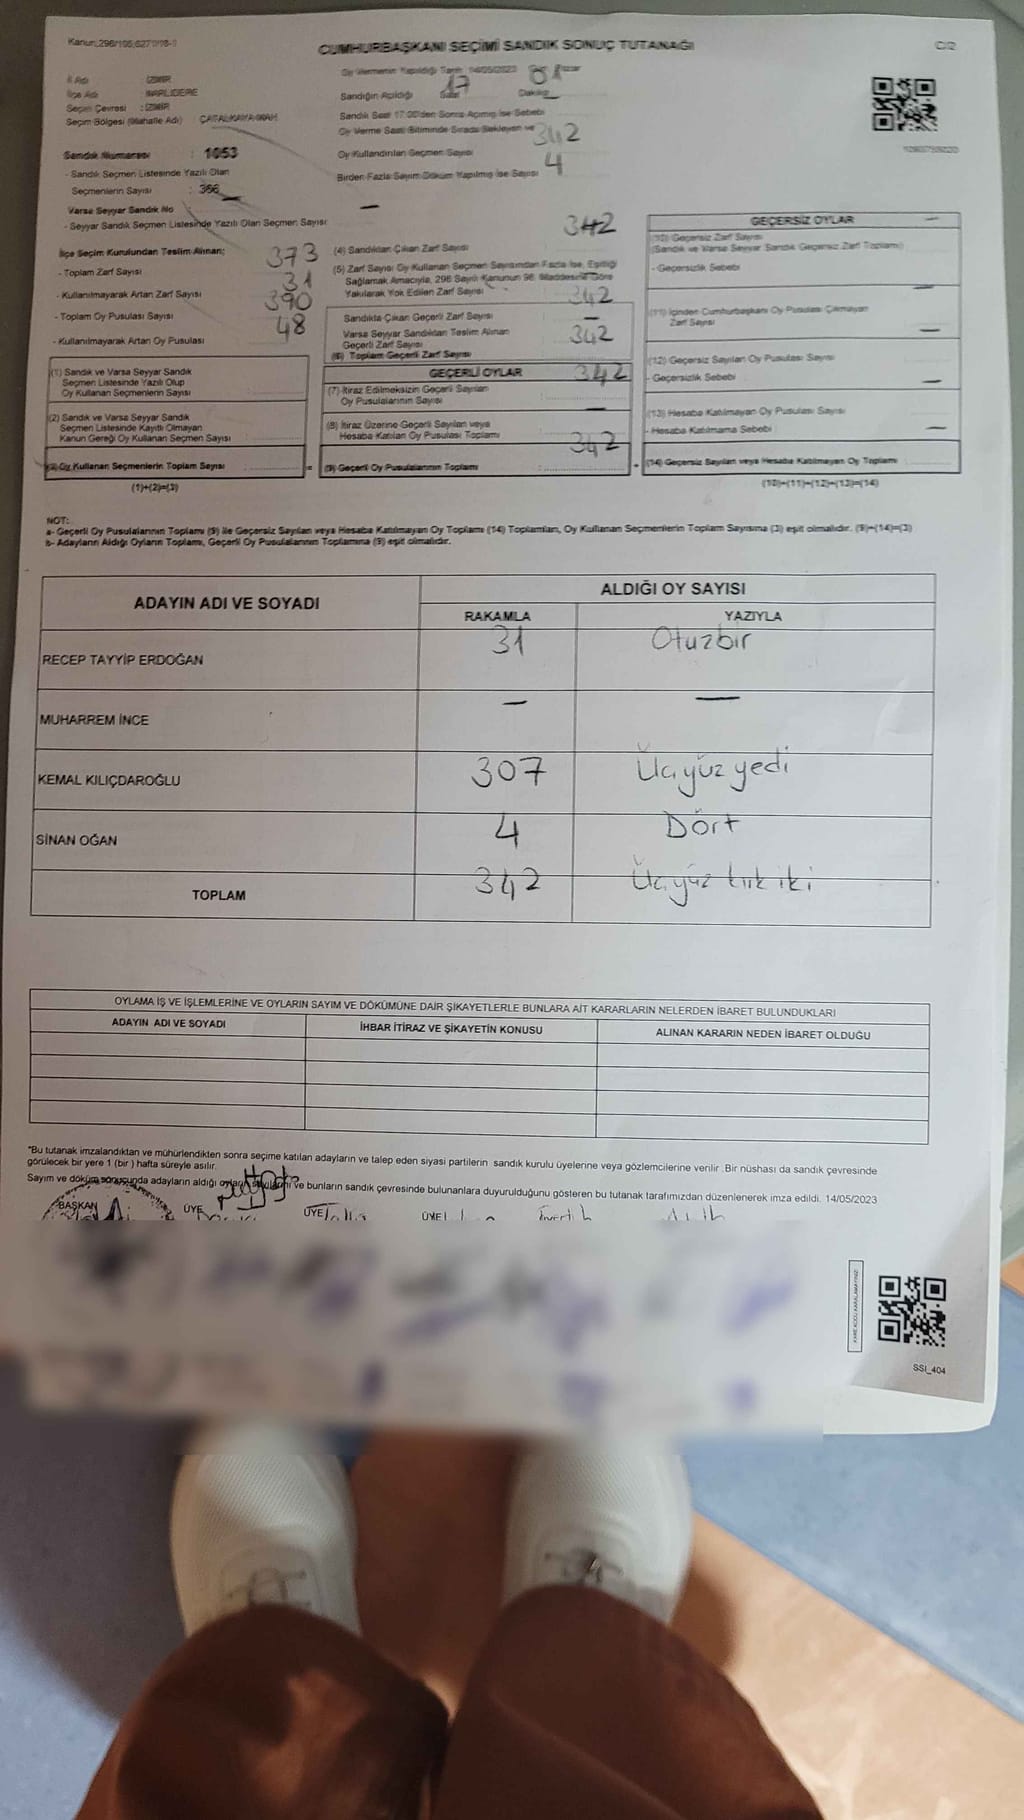 Kanun:298/105,6271/98-1
CUMHURBAŞKANI SEÇİMİ SANDIK SONUÇ TUTANAĞI
C/2
İl Adı : İZMİR
İlçe Adı : NARLIDERE
Seçim Çevresi : İZMİR
Seçim Bölgesi (Mahalle Adı) ÇATALKAYA MAH.
Sandık Numarası : 1053
- Sandık Seçmen Listesinde Yazılı Olan
Seçmenlerin Sayısı : 366
Varsa Seyyar Sandık No —
- Seyyar Sandık Seçmen Listesinde Yazılı Olan Seçmen Sayısı
Oy Vermenin Yapıldığı Tarih 14/05/2023 Pazar
Sandığın Açıldığı 17 Saat 01 Dakika
Sandık Saat 17:00'den Sonra Açılmış İse Sebebi
Oy Verme Saati Bitiminde Sırada Bekleyen ve
Oy Kullandırılan Seçmen Sayısı 342
Birden Fazla Sayım Döküm Yapılmış İse Sayısı 4
İlçe Seçim Kurulundan Teslim Alınan;
- Toplam Zarf Sayısı 373
- Kullanılmayarak Artan Zarf Sayısı 31
- Toplam Oy Pusulası Sayısı 390
- Kullanılmayarak Artan Oy Pusulası 48
(1) Sandık ve Varsa Seyyar Sandık
Seçmen Listesinde Yazılı Olup
Oy Kullanan Seçmenlerin Sayısı
(2) Sandık ve Varsa Seyyar Sandık
Seçmen Listesinde Kayıtlı Olmayan
Kanun Gereği Oy Kullanan Seçmen Sayısı
(3) Oy Kullanan Seçmenlerin Toplam Sayısı
(1)+(2)=(3)
342
(4) Sandıktan Çıkan Zarf Sayısı
(5) Zarf Sayısı Oy Kullanan Seçmen Sayısından Fazla İse, Eşitliği
Sağlamak Amacıyla, 298 Sayılı Kanunun 98. Maddesine Göre
Yakılarak Yok Edilen Zarf Sayısı 342
Sandıkta Çıkan Geçerli Zarf Sayısı —
Varsa Seyyar Sandıktan Teslim Alınan
Geçerli Zarf Sayısı 342
(6) Toplam Geçerli Zarf Sayısı
GEÇERLİ OYLAR 342
(7) İtiraz Edilmeksizin Geçerli Sayılan
Oy Pusulalarının Sayısı —
(8) İtiraz Üzerine Geçerli Sayılan veya
Hesaba Katılan Oy Pusulası Toplamı 342
(9) Geçerli Oy Pusulalarının Toplamı
GEÇERSİZ OYLAR —
(10) Geçersiz Zarf Sayısı
(Sandık ve Varsa Seyyar Sandık Geçersiz Zarf Toplamı)
- Geçersizlik Sebebi
—
(11) İçinden Cumhurbaşkanı Oy Pusulası Çıkmayan
Zarf Sayısı —
(12) Geçersiz Sayılan Oy Pusulası Sayısı
- Geçersizlik Sebebi —
(13) Hesaba Katılmayan Oy Pusulası Sayısı
- Hesaba Katılmama Sebebi —
(14) Geçersiz Sayılan veya Hesaba Katılmayan Oy Toplamı
(10)+(11)+(12)+(13)=(14)
NOT:
a- Geçerli Oy Pusulalarının Toplamı (9) ile Geçersiz Sayılan veya Hesaba Katılmayan Oy Toplamı (14) Toplamları, Oy Kullanan Seçmenlerin Toplam Sayısına (3) eşit olmalıdır. (9)+(14)=(3)
b- Adayların Aldığı Oyların Toplamı, Geçerli Oy Pusulalarının Toplamına (9) eşit olmalıdır.
ADAYIN ADI VE SOYADI
ALDIĞI OY SAYISI
RAKAMLA YAZIYLA
RECEP TAYYİP ERDOĞAN 31 Otuzbir
MUHARREM İNCE — —
KEMAL KILIÇDAROĞLU 307 Üçyüz yedi
SİNAN OĞAN 4 Dört
TOPLAM 342 Üçyüz kırk iki
OYLAMA İŞ VE İŞLEMLERİNE VE OYLARIN SAYIM VE DÖKÜMÜNE DAİR ŞİKAYETLERLE BUNLARA AİT KARARLARIN NELERDEN İBARET BULUNDUKLARI
ADAYIN ADI VE SOYADI İHBAR İTİRAZ VE ŞİKAYETİN KONUSU ALINAN KARARIN NEDEN İBARET OLDUĞU
*Bu tutanak imzalandıktan ve mühürlendikten sonra seçime katılan adayların ve talep eden siyasi partilerin sandık kurulu üyelerine veya gözlemcilerine verilir. Bir nüshası da sandık çevresinde
görülecek bir yere 1 (bir) hafta süreyle asılır.
Sayım ve döküm sonucunda adayların aldığı oyların sayılarını ve bunların sandık çevresinde bulunanlara duyurulduğunu gösteren bu tutanak tarafımızdan düzenlenerek imza edildi. 14/05/2023
BAŞKAN ÜYE ÜYE ÜYE
KARE KODU KARALAMAYINIZ!
SSI_404